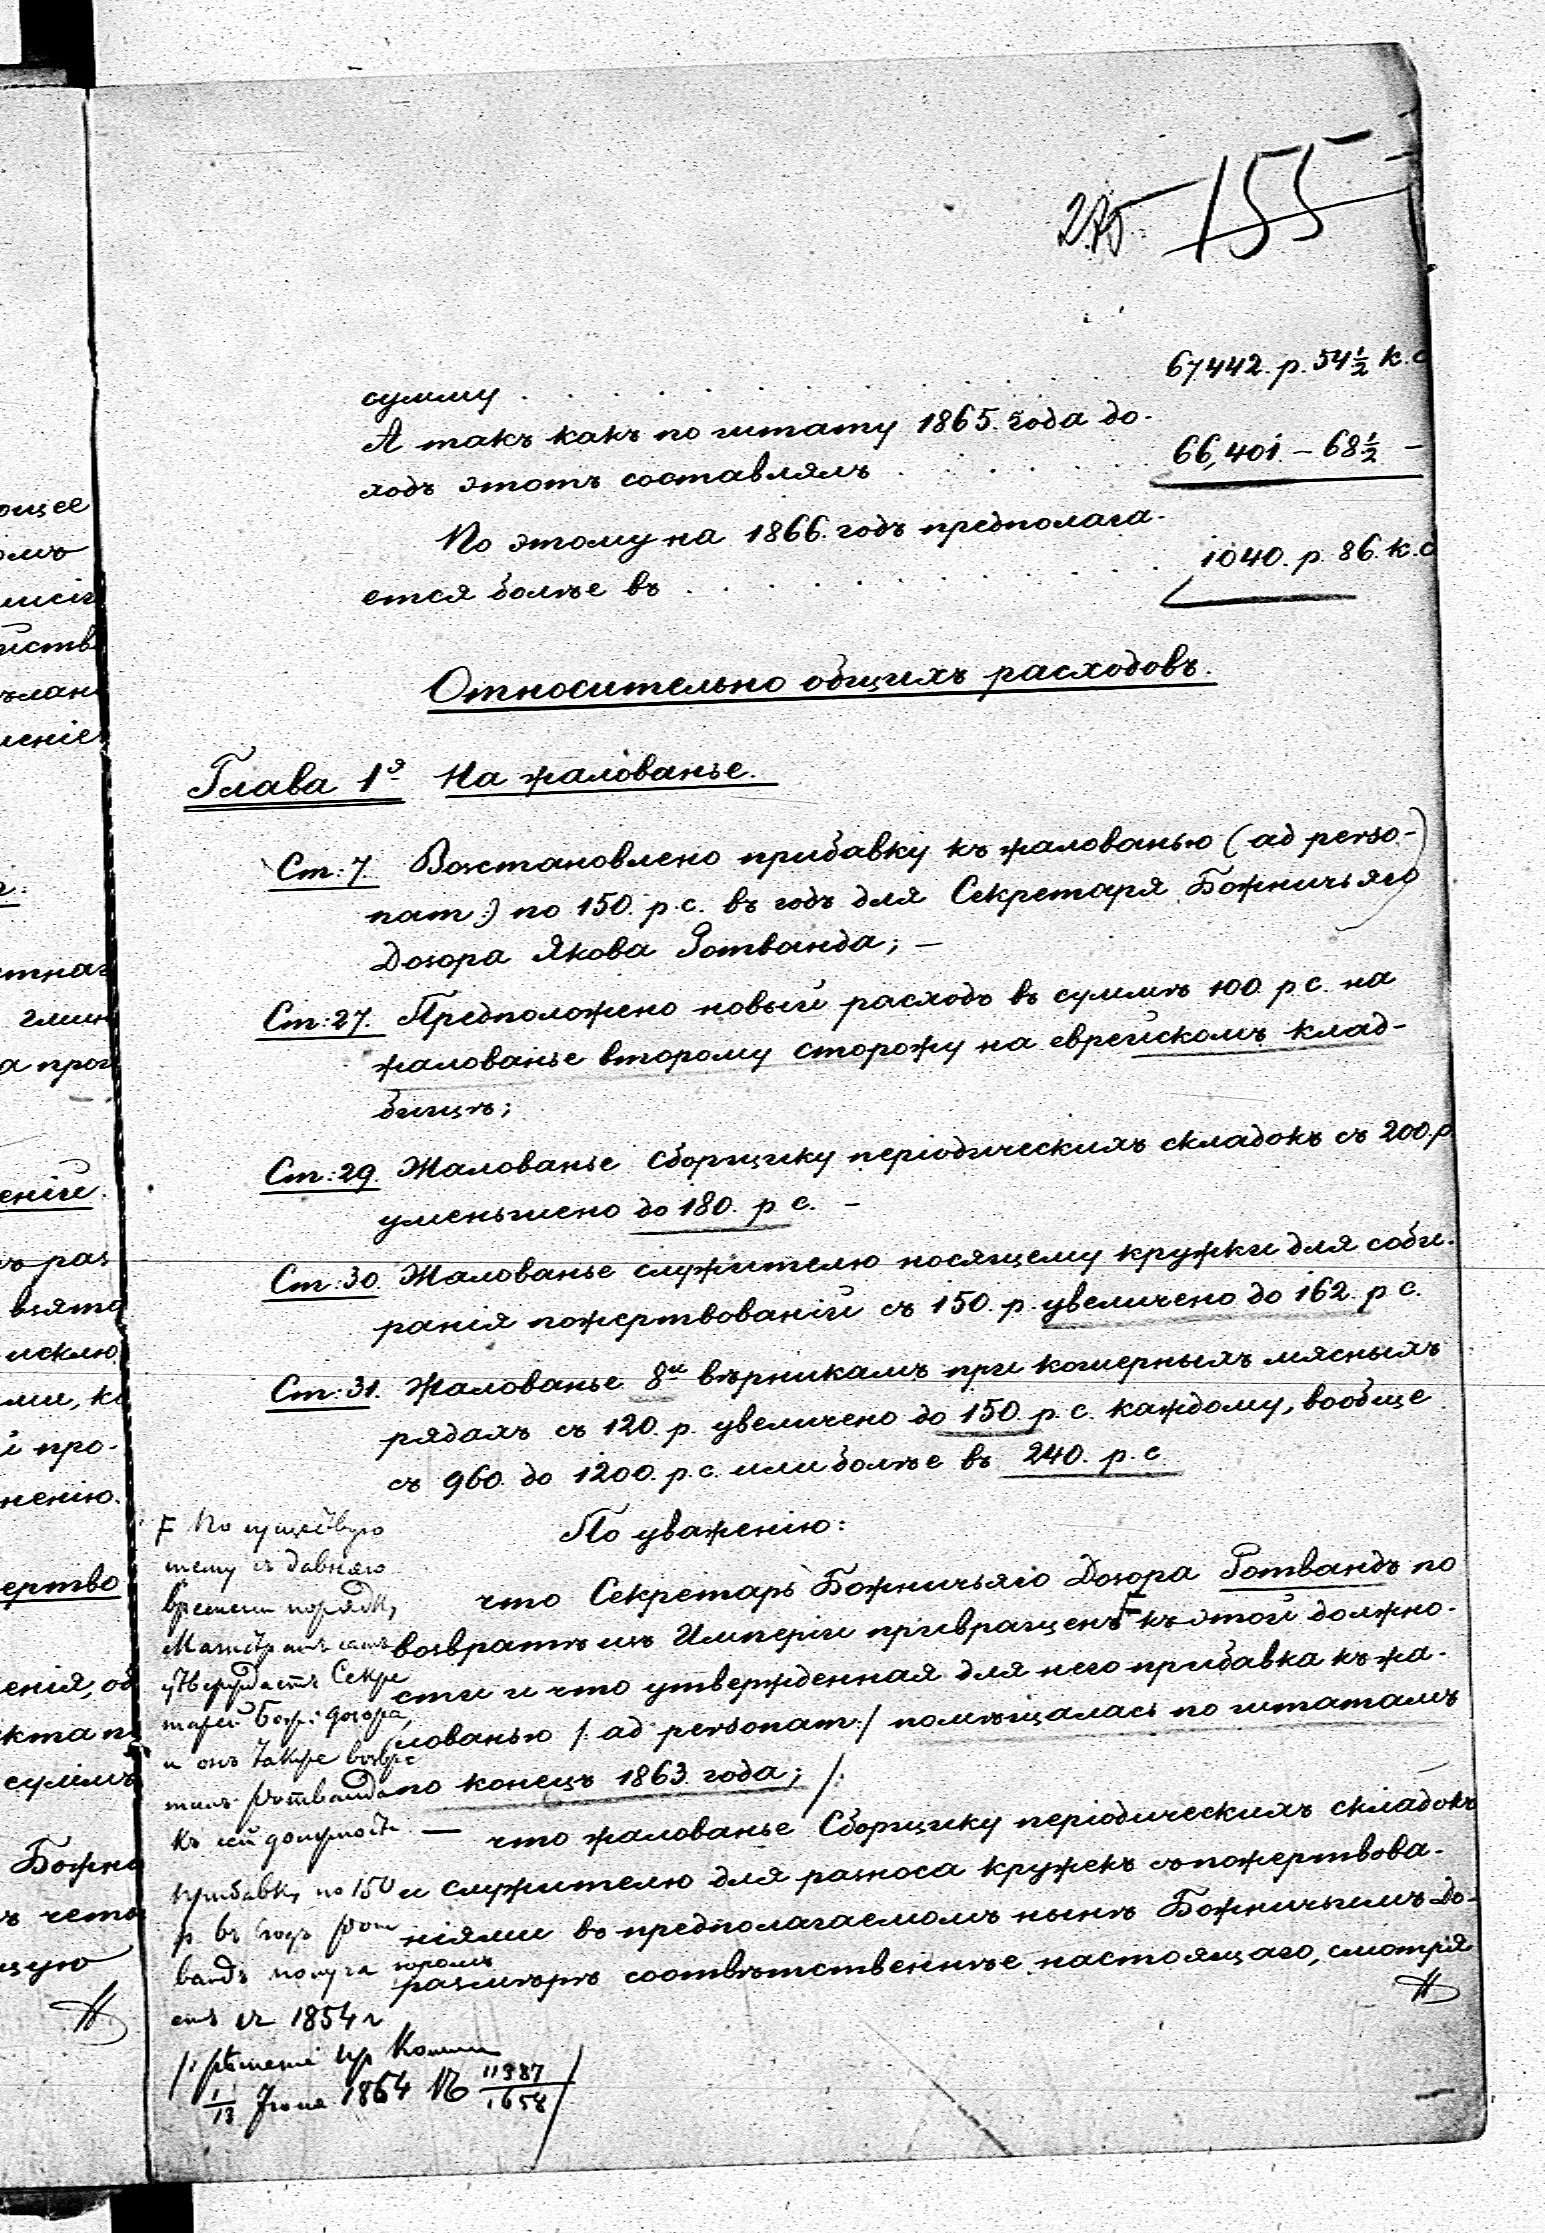 275. 155
сумму . . . . . . . . . . 67442. р. 54 1/2 к. с
А такъ какъ по штату 1865. года до-
ходъ этотъ составлялъ . . . . . . 66,401 – 68 1/2 –
По этому на 1866. годъ предполага-
ется болѣе въ . . . . . . . . . . 1040. р. 86. к. с
Относительно общихъ расходовъ.
Глава 1я На жалованье.
Ст: 7. Возстановлено прибавку къ жалованью (ad perso-
nam:) по 150. р. с. въ годъ для Секретаря Божничьяго
Дозора Якова Ротванда; –
Ст: 27. Предположено новый расходъ въ суммѣ 100. р. с. на
жалованье второму сторожу на еврейскомъ клад-
бищѣ;
Ст: 29. Жалованье сборщику періодическихъ складокъ съ 200. р
уменьшено до 180. р. с. –
Ст: 30 Жалованье служителю носящему кружки для соби-
ранія пожертвованій съ 150. р. увеличено до 162. р. с.
Ст: 31. Жалованье 8и вѣрникамъ при кошерныхъ мясныхъ
рядахъ съ 120. р. увеличено до 150. р. с. каждому, вообще
съ 960. до 1200. р. с. или болѣе въ 240. р. с.
По уваженію:
что Секретарь Божничьяго Дозора Ротвандъ по
возвратѣ изъ Имперіи привращенъ F къ этой должно-
сти и что утвержденная для него прибавка къ жа-
лованью /: ad personam :/ помѣщалась по штатамъ
по конецъ 1863. года; /.
— что жалованье Сборщику періодическихъ складокъ
и служителю для разноса кружекъ съ пожертвова-
ніями въ предполагаемомъ нынѣ Божничьимъ До-
зоромъ
размѣрѣ соотвѣтственнѣе настоящаго, смотря
F По существую
щему съ давняго
времени порядку,
Магистратъ самъ
утверждаетъ Секре
тарей Бож: дозора,
и онъ также возвра
тилъ Ротванда
къ сей должности
прибавку по 150
р. въ годъ Рот
вандъ получа
етъ съ 1854 г
/: рѣшеніе Пр Комми
1/13 Іюня 1864 № 11387/1658 /